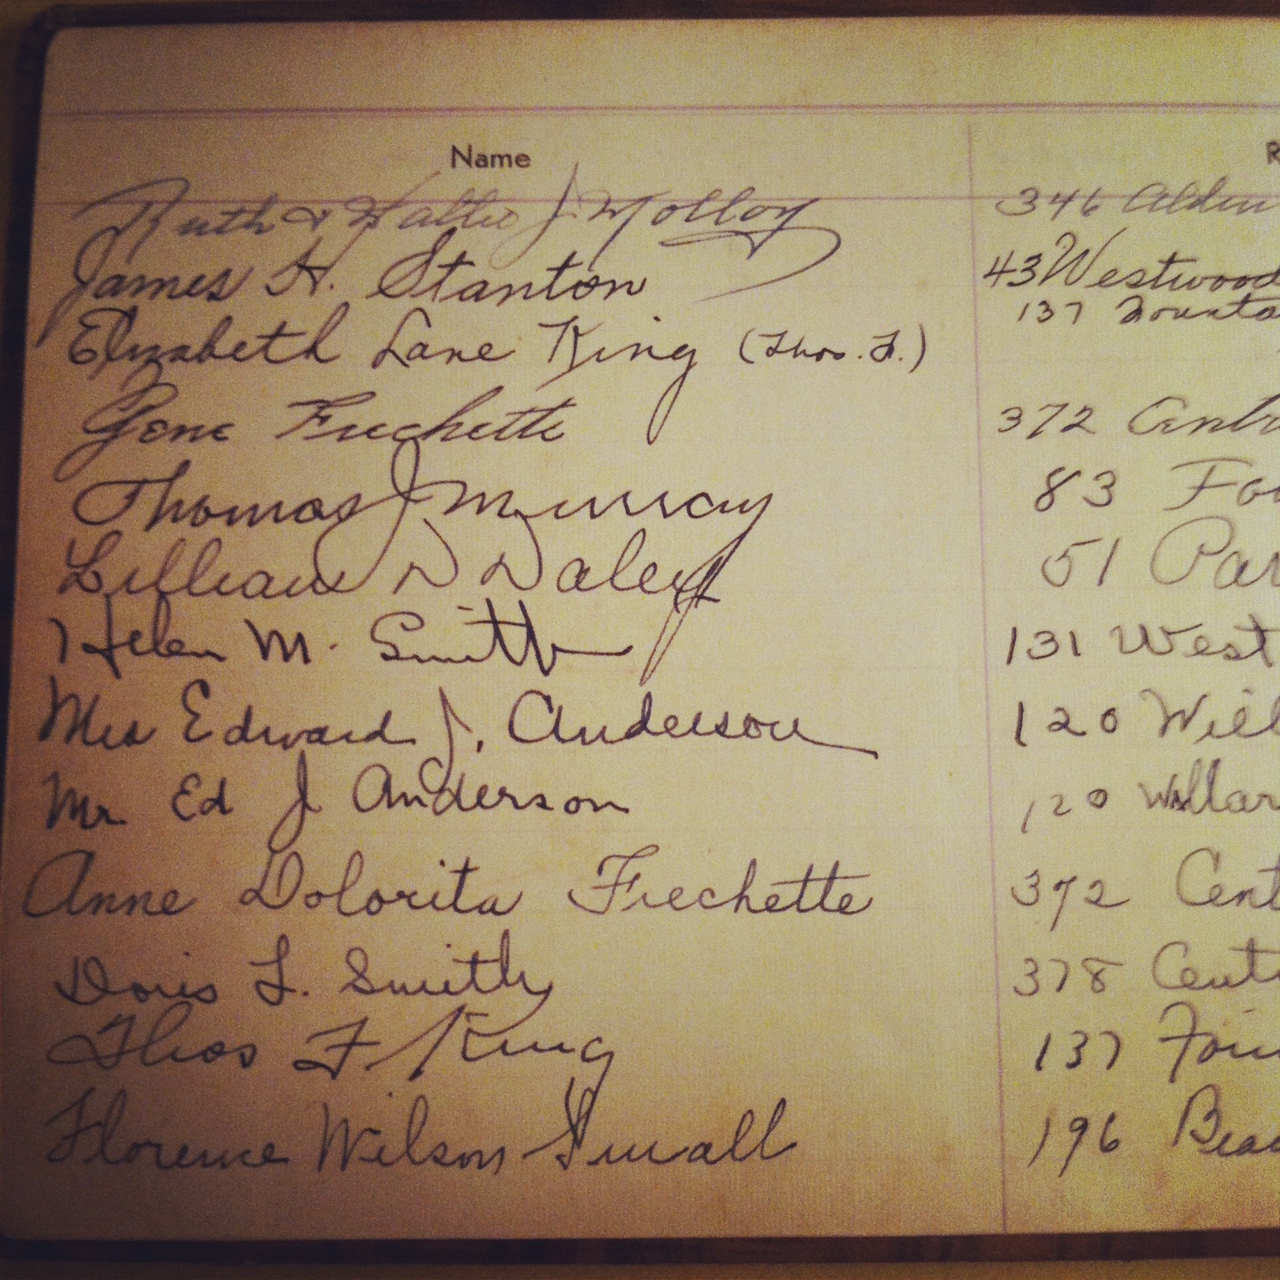 Name R
Ruth & Walter J. Molloy 346 Alden
James H. Stanton 43 Westwood
Elizabeth Lane King (Thos. F.) 137 Founta
Gene Frechette 372 Centr
Thomas J Murray 83 Fo
Lillian D Daley 51 Par
Helen M. Smith 131 West
Mrs Edward J. Anderson 120 Will
Mr Ed J Anderson 120 Willar
Anne Dolorita Frechette 372 Cent
Doris L. Smith 378 Cent
Thos F King 137 Foun
Florence Wilson 196